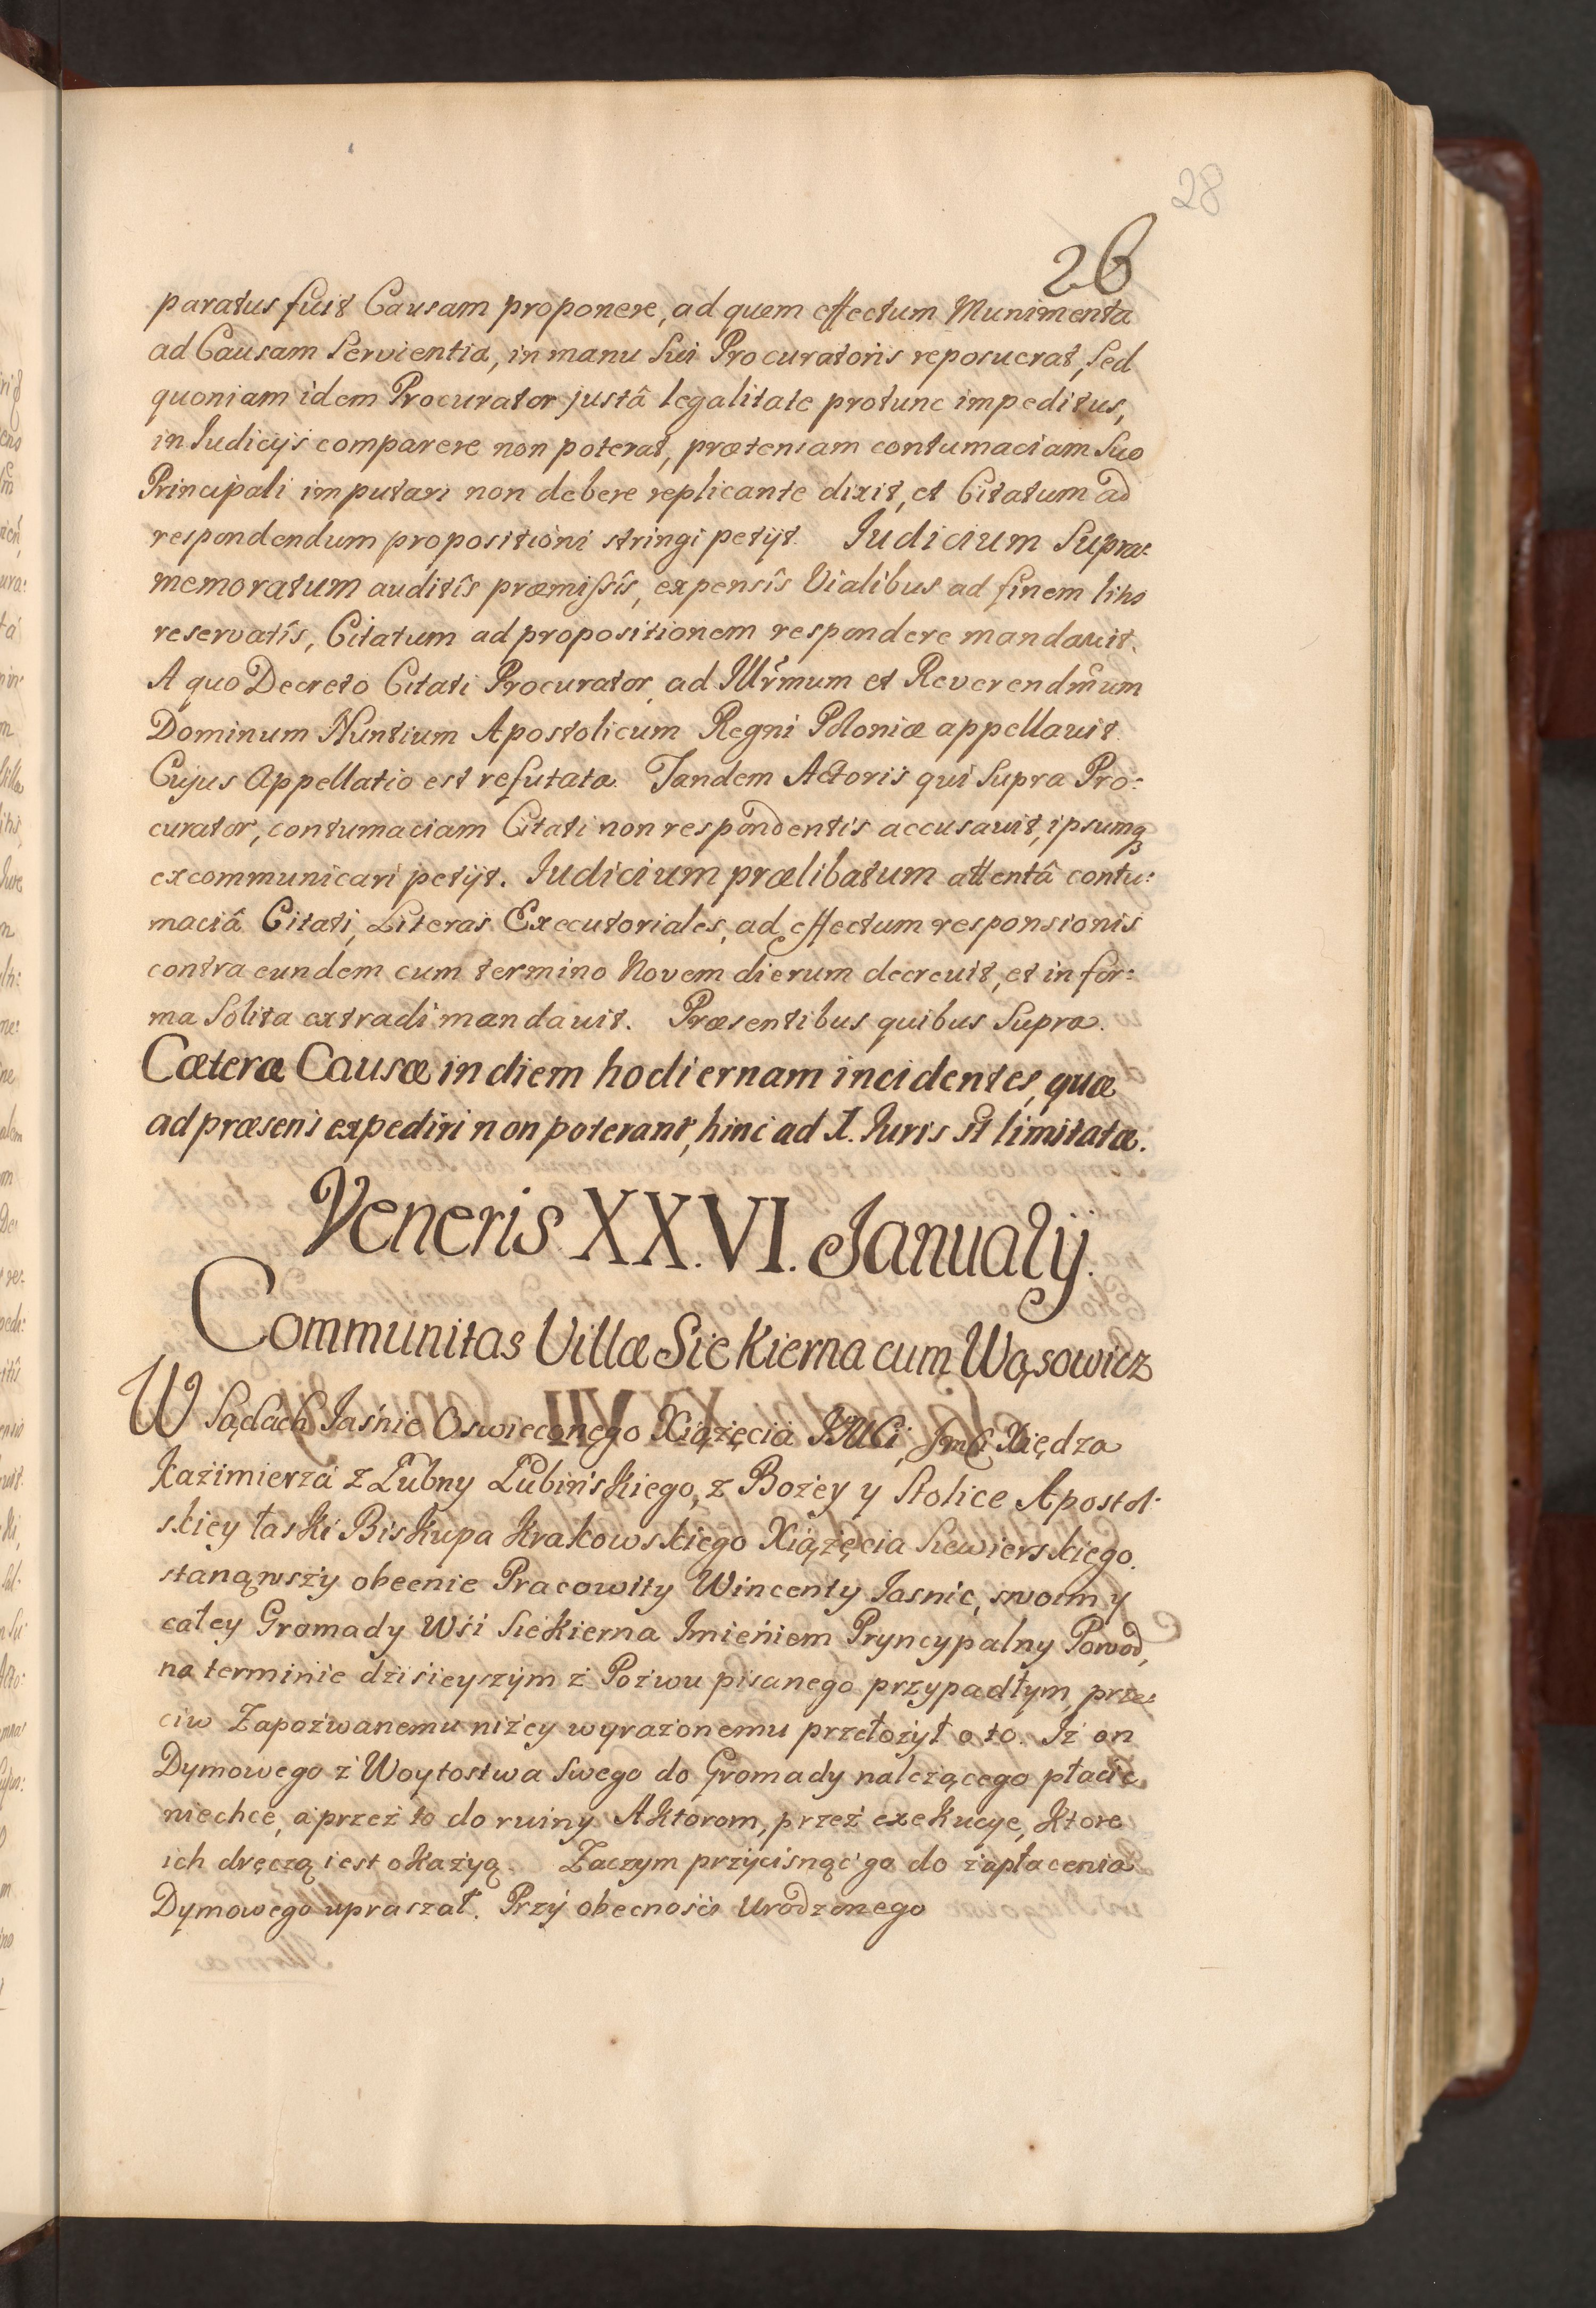 28
26
paratus fuit Causam proponere, ad quem effectum Munimenta
ad Causam Servientia, in manu Sui Procuratoris reposuerat, Sed
quoniam idem Procurator justâ legalitate protunc impeditus,
in Iudicijs comparere non poterat, prætensam contumaciam Suo
Principali imputari non debere replicante dixit, et Citatum ad
respondendum propositioni stringi petijt. Iudicium Supra:
memoratum auditîs præmissîs, expensîs Vialibus ad finem litis
reservatîs, Citatum ad propositionem respondere mandavit.
A quo Decreto Citati Procurator, ad Illrmum et Reverendmum
Dominum Nuntium Apostolicum Regni Poloniæ appellavit.
Cujus Appellatio est refutata. Tandem Actoris qui Supra Pro:
curator, contumaciam Citati non respondentis accusavit, ipsumq3
excommunicari petijt. Iudicium prælibatum attentâ contu:
maciâ Citati, Literas Executoriales, ad effectum responsionis
contra eundem cum termino Novem dierum decrevit, et in for:
ma Solita extradi mandavit. Præsentibus quibus Supra.
Cæteræ Causæ in diem hodiernam incidentes, quæ
ad præsens expediri non poterant, hinc ad I. Iuris st limitatæ.
Veneris XX.VI. Ianuarij.
Communitas Villæ Siekierna cum Wąsowicz
W Sądach Jaśnie Oswieconego Xiążęcia JMCi, JmCi Xiędza
Kaźimierza z Łubny Łubińskiego, z Bożey y Stolice Apostol:
skiey łaski Biskupa Krakowskiego Xiążęcia Siewierskiego.
stanąwszy obecnie Pracowity Wincenty Jasnic, swoim y
całey Gromady Wśi Siekierna Imieniem Pryncypalny Powod,
na terminie dziśieyszym z Pozwu pisanego przypadłym, prze:
ciw Zapozwanemu niżey wyrażonemu przełożył o to. Iż on
Dymowego z Woytostwa Swego do Gromady należącego płacić
niechce, a przez to do ruiny Aktorom, przez exekucye, ktore
ich dręczą iest okażyą. Zaczym przycisnąć go do zapłacenia
Dymowego upraszał. Przy obecnośći Urodzonego